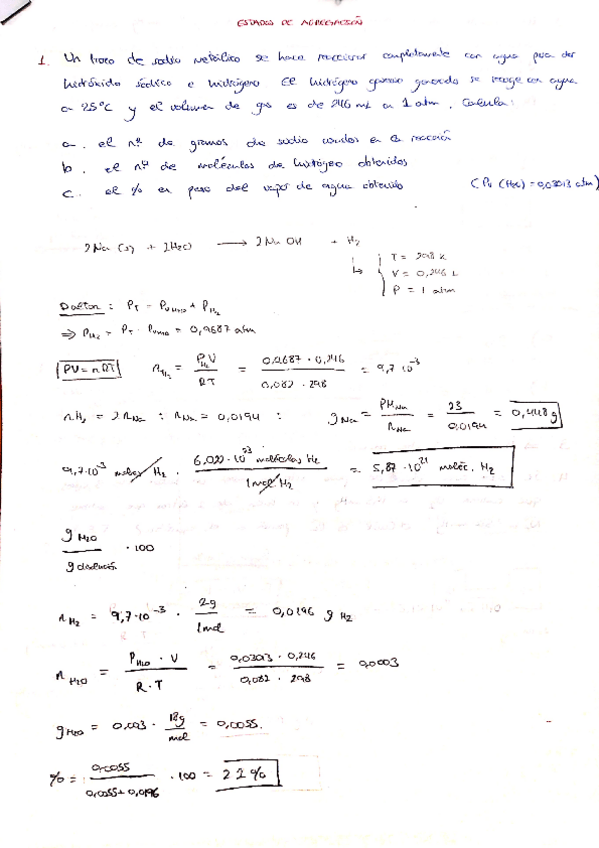 ESTADOS DE AGREGACIÓN
1. Un trozo de sodio metálico se hace reaccionar completamente con agua para dar
hidróxido sódico e hidrógeno. El hidrógeno gaseoso generado se recoge con agua
a 25ºC y el volumen de gas es de 246 mL a 1 atm. Calcula:
a. el nº de gramos de sodio usados en la reacción
b. el nº de moléculas de hidrógeno obtenidos
c. el % en peso del vapor de agua obtenido (Pv (H2O) = 0,0313 atm)
2Na (s) + 2H2O → 2NaOH + H2
T = 298 K
V = 0,246 L
P = 1 atm
Dalton: PT = PVH2O + PH2
⇒ PH2 = PT - PVH2O = 0,9687 atm
PV = nRT nH2 = PH2 V / RT = 0,9687 · 0,246 / 0,082 · 298 = 9,7·10^-3
nH2 = 2nNa : nNa = 0,0194 : gNa = PMNa / nNa = 23 / 0,0194 = 0,448 g
9,7·10^-3 moles H2 · 6,022·10^23 moléculas H2 / 1mol H2 = 5,87·10^21 moléc. H2
g H2O / g disolución · 100
nH2 = 9,7·10^-3 · 2g / 1mol = 0,0196 g H2
nH2O = PH2O · V / R·T = 0,0313 · 0,246 / 0,082 · 298 = 0,0003
gH2O = 0,003 · 18g / mol = 0,0055.
% = 0,0055 / 0,0055+0,0196 · 100 = 22%